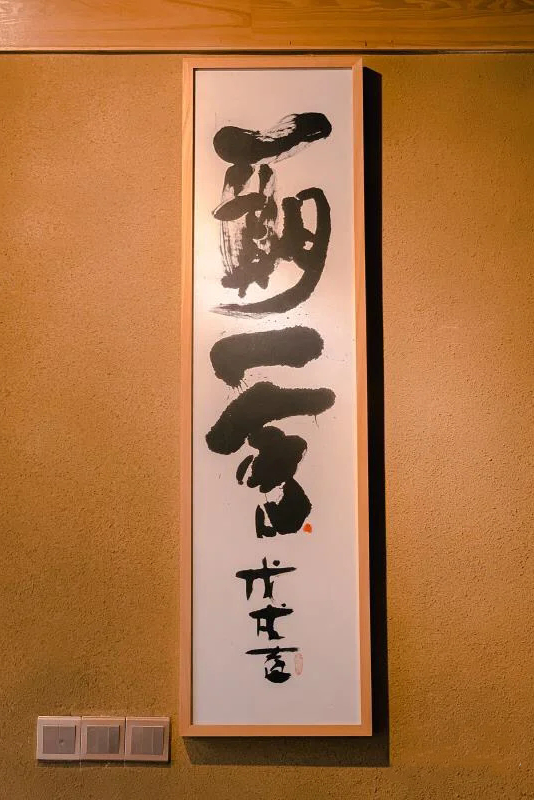 一期一會
戊戌